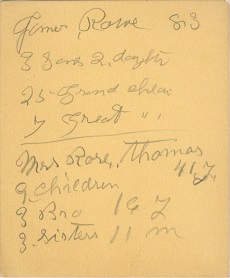 James Rowe 83
3 Sons 2. daughter
25 Grand
7 Great " "
Mrs Rose, Thomas
41 y
9 Children
3 Bro 16 y
3 Sisters 11 m